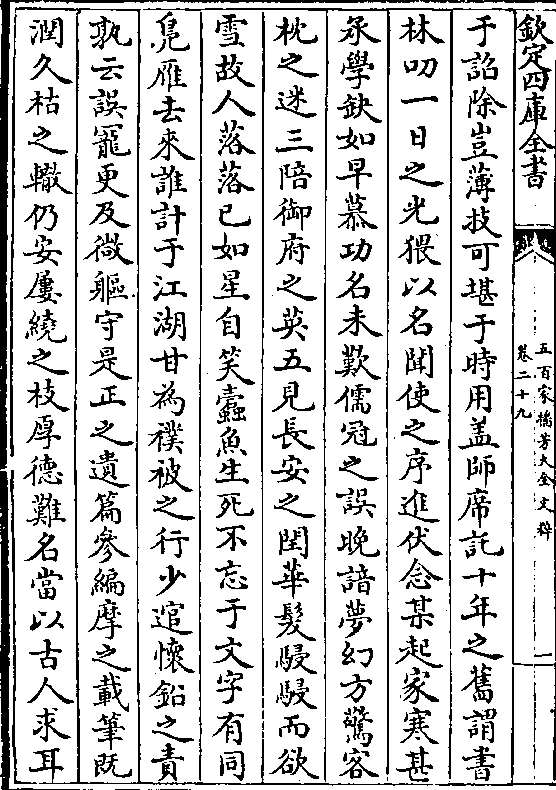 欽定四庫全書
五百家播芳大全文粹
卷二十九
一
于詔除豈薄技可堪于時用盖師席託十年之舊謂書
林叨一日之光猥以名聞使之序進伏念某起家寒甚
承學缺如早慕功名未歎儒冠之誤晚諳夢幻方驚客
枕之迷三陪御府之英五見長安之閏華髮駸駸而欲
雪故人落落已如星自笑蠧魚生死不忘于文字有同
鳬雁去來誰計于江湖甘為襆被之行少逭懷鉛之責
孰云誤寵更及微軀守是正之遺篇參編摩之載筆既
潤久枯之轍仍安屢繞之枝厚德難名當以古人求耳